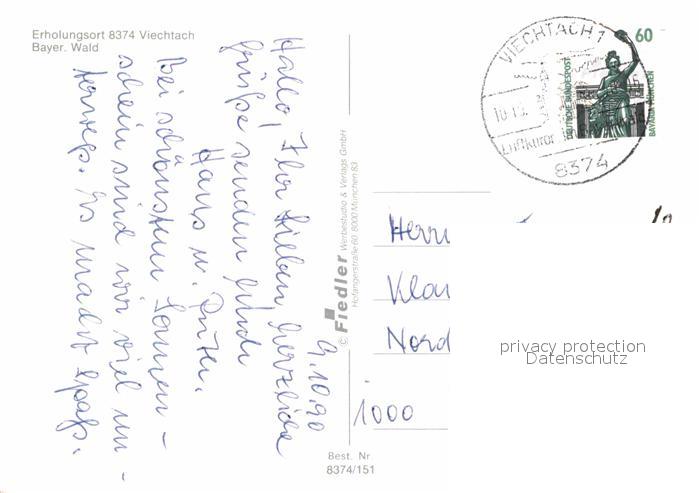 Erholungsort 8374 Viechtach
Bayer. Wald
9.10.90
Hallo, Ihr Lieben, herzliche
Grüße senden Euch
Hans u. Peter.
Bei schönstem Sonnen-
schein sind wir viel un-
terwegs. Es macht Spaß.
© Fiedler Werbestudio & Verlags GmbH
Hofangerstraße 60 8000 München 83
Best. Nr
8374/151
VIECHTACH 1
Luftkurort
8374
60
DEUTSCHE BUNDESPOST
BAVARIA MÜNCHEN
Herrn
Klau
Nord
1000
privacy protection
Datenschutz